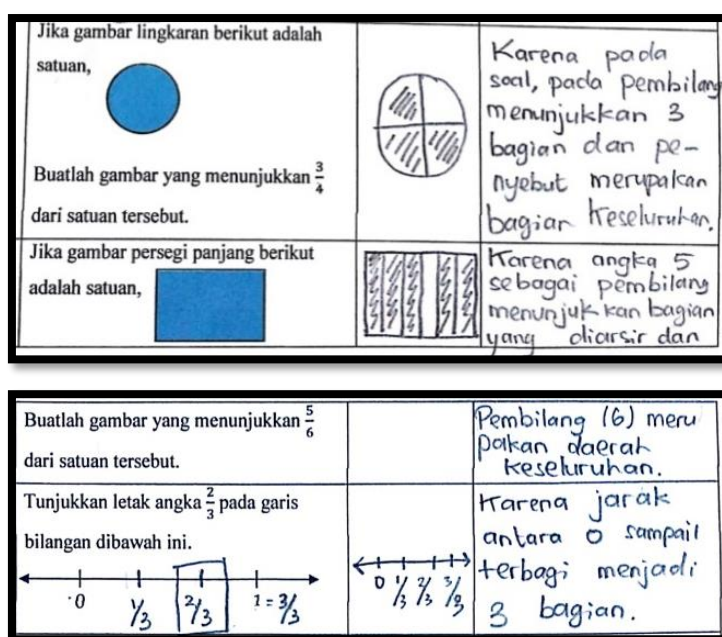 Jika gambar lingkaran berikut adalah
satuan,
Buatlah gambar yang menunjukkan 3/4
dari satuan tersebut.
Karena pada
soal, pada pembilang
menunjukkan 3
bagian dan pe-
nyebut merupakan
bagian keseluruhan.
Jika gambar persegi panjang berikut
adalah satuan,
Karena angka 5
sebagai pembilang
menunjuk kan bagian
yang diarsir dan
Buatlah gambar yang menunjukkan 5/6
dari satuan tersebut.
Pembilang (6) meru
pakan daerah
keseluruhan.
Tunjukkan letak angka 2/3 pada garis
bilangan dibawah ini.
0 1/3 2/3 1 = 3/3
0 1/3 2/3 3/3
Karena jarak
antara 0 sampail
terbagi menjadi
3 bagian.